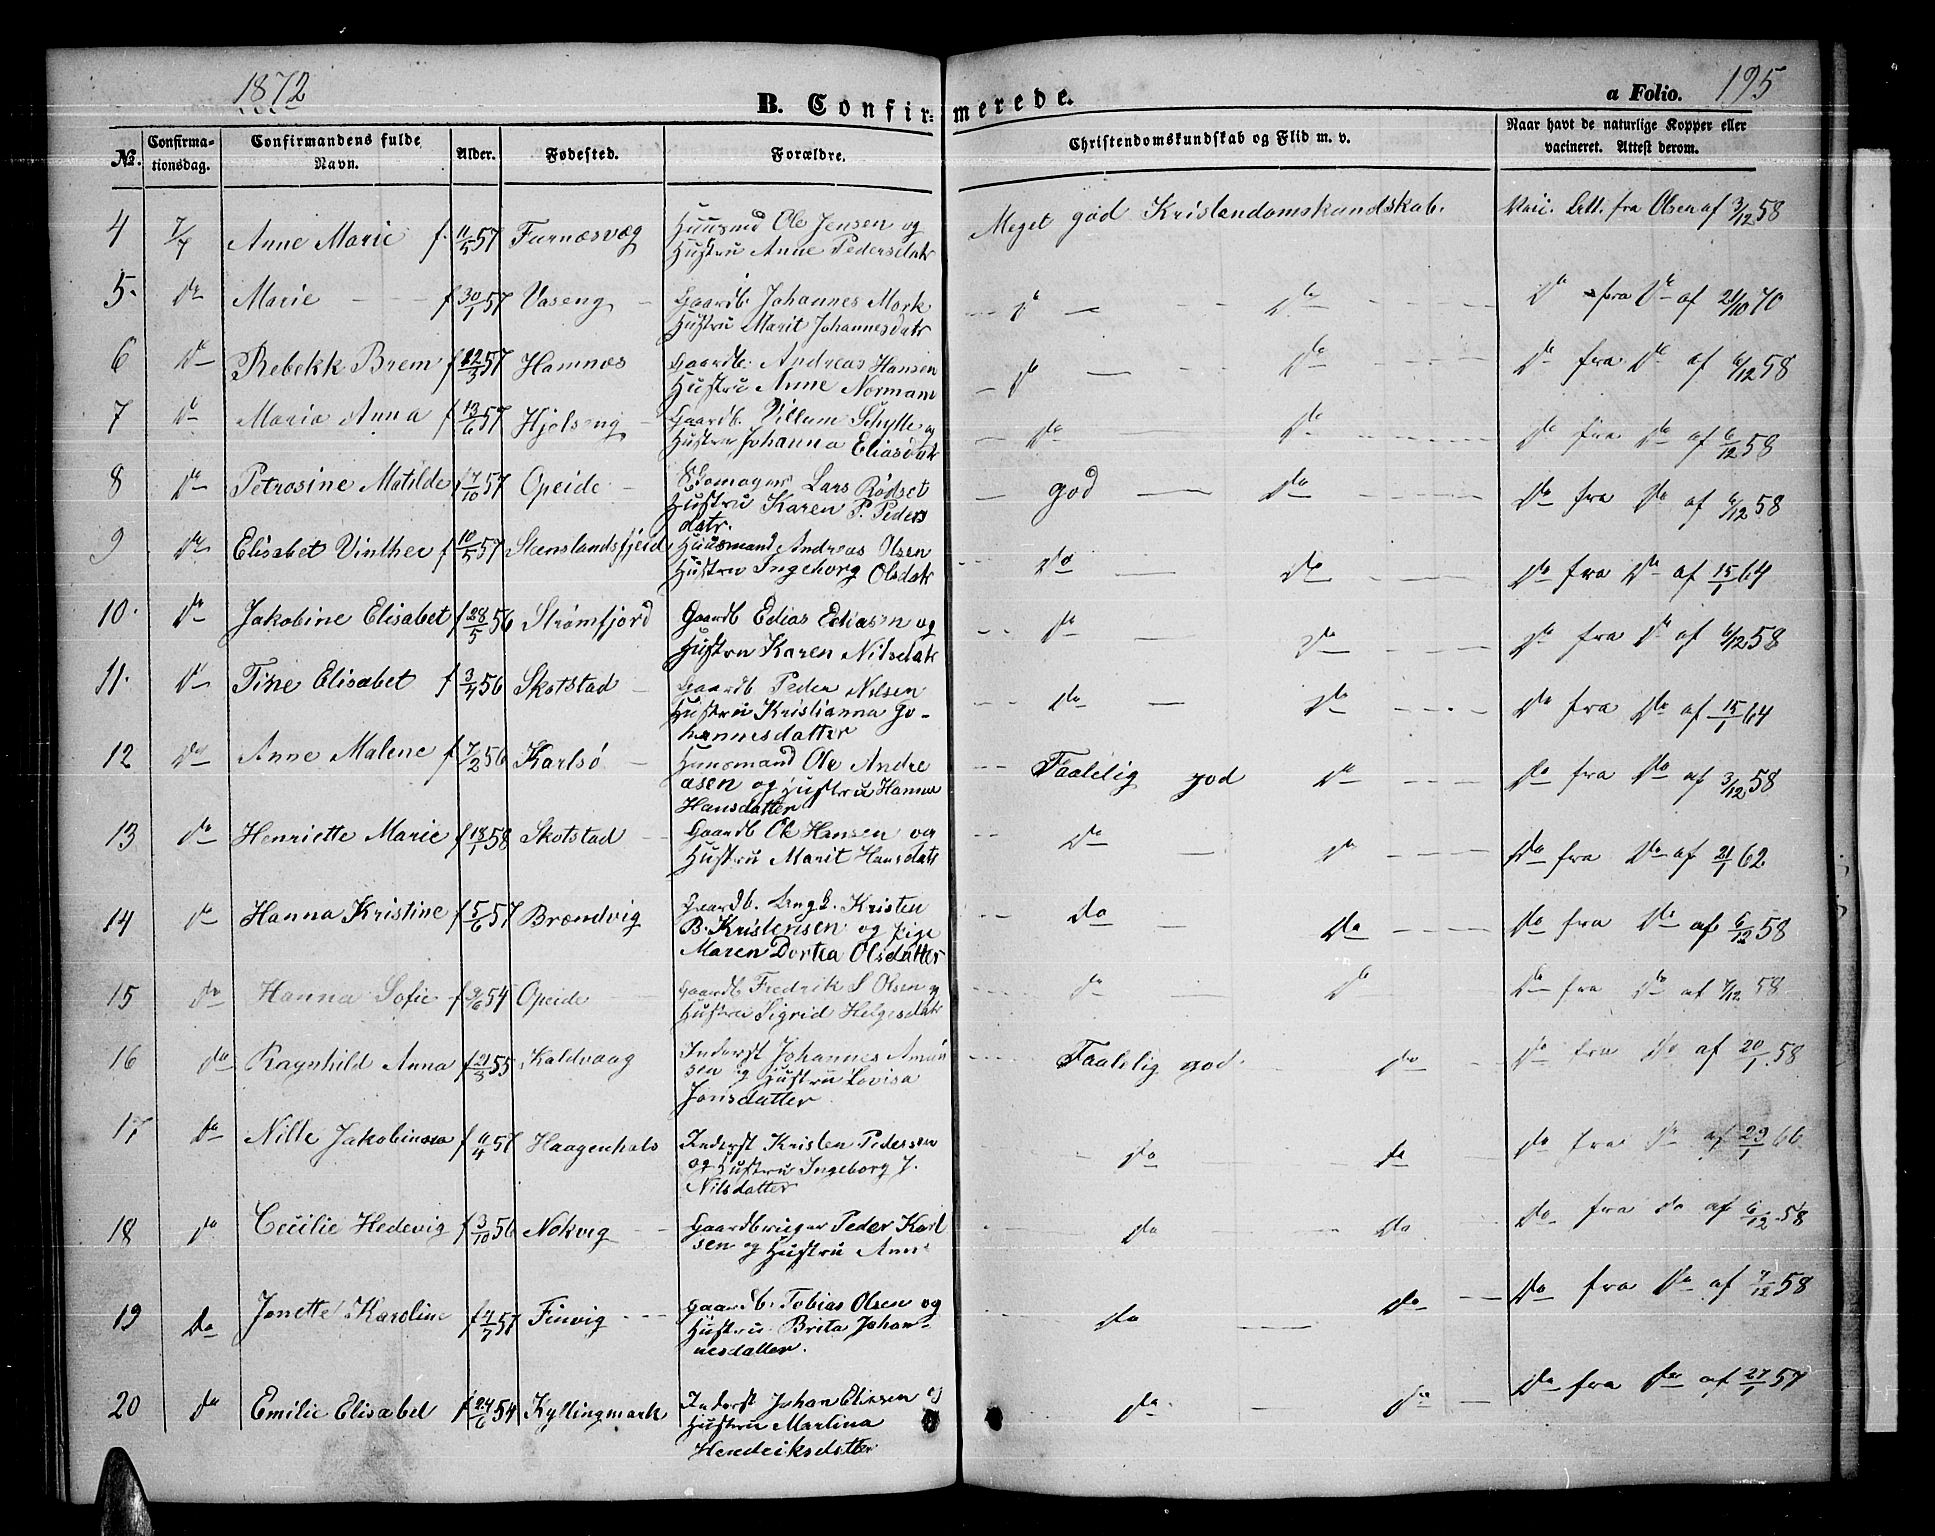 1872 B. Confirmerede. a Folio. 195
No. Confirmationsdag. Confirmandens fulde Navn. Alder. Fødested. Forældre. Christendomskundskab og Flid m. v. Naar havt de naturlige Kopper eller vacineret. Attest derom.
4 7/7 Anne Marie f. 11/5 57 Furnæsvæg Huusmd Ole Jensen og Meget god Kristendomskundskab. Att. fra Olsen af 3/12 58
Hustru Anne Pedersdatr
5. Do Marie f 30/1 57 Vaseng Gaardb. Johannes Mork Do Do Do fra Do af 21/10 70
Hustru Marit Johannesdatr
6 Do Rebekk Brem f 12/3 57 Hamnæs Gaardb. Andreas Hansen Do Do Do fra Do af 6/12 58
Hustru Anne Normann
7 Do Maria Anna f 13/6 57 Hjelseng Gaardb. Villum Schytte og Do Do Do fra Do af 6/12 58
Hustru Johanna Eliasdatr
8 Do Petrosine Matilde f 7/10 57 Opeide Skomager Lars Rødset god Do Do fra Do af 6/12 58
Hustru Karen P. Peders
datr.
9 Do Elisabet Vinther f 10/5 57 Stenslandsfjeld Huusmand Andreas Olsen Do Do Do fra Do af 15/1 64
Hustru Ingeborg Olsdatr
10. Do Jakobine Elisabet f 28/5 56 Strømfjord Gaardb Edias Ediasen og Do Do Do fra Do af 6/12 58
Hustru Karen Nilsdatr
11. Do Tine Elisabet f 3/4 56 Skotstad Gaardb Peder Nilsen Do Do Do fra Do af 15/1 64
Hustru Kristianna Jo-
hannesdatter
12 Do Anne Malene f 7/2 56 Karlsø Huusmand Ole Andre Faalelig god Do Do fra Do af 3/12 58
asen og Hustru Hanna
Hansdatter
13 Do Henriette Marie f 18/1 58 Skotstad Gaardb Ole Hansen og Do Do Do fra Do af 21/1 62
Hustru Marit Hansdatr
14 Do Hanna Kristine f 5/6 57 Brændvig Gaardb. Ungk. Kristen Do Do Do fra Do af 6/12 58
B. Kristensen og pige
Maren Dortea Olsdatter
15 Do Hanna Sofie f 9/6 54 Opeide Gaardb Fredrik S Olsen og Do Do Do fra Do af 7/12 58
Hustru Sigrid Helgesdatr
16 Do Ragnhild Anna f 21/8 55 Kaldvaag Inderst Johannes Amun Faalelig god. Do Do fra Do af 20/1 58
sen og Hustru Lovisa
Jonsdatter
17, Do Nille Jakobinaa f 11/4 57 Haagenhals Inderst Kristen Pedersen Do Do Do fra Do af 29/1 66
og Hustru Ingeborg J.
Nilsdatter
18 Do Cecilie Hedevig f 3/10 56 Nokvig Gaardbruger Peder Karl Do Do Do fra Do af 6/12 58
sen og Hustru Ann
19 Do Jonette Karoline f 4/7 57 Finvig Gaardb. Tobias Olsen og Do Do Do fra Do af 7/12 58
Hustru Brita Johan-
nesdatter.
20 Do Emilie Elisabet f 24/6 54 Kyllingmark Inderst Johan Eliesen og Do Do Do fra Do af 27/1 57
Hustru Martina
Hendriksdatter